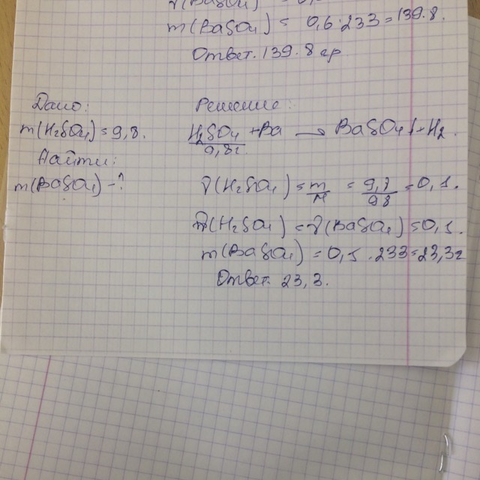 ν(BaSO₄) = 0,
m(BaSO₄) = 0,6 · 233 = 139.8.
Ответ. 139.8 гр
Дано:
m(H₂SO₄) = 9,8.
Найти:
m(BaSO₄) - ?
Решение:
H₂SO₄ + Ba → BaSO₄↓ + H₂.
9,8г.
ν(H₂SO₄) = m/M = 9,8/98 = 0,1.
ν(H₂SO₄) = ν(BaSO₄) = 0,1.
m(BaSO₄) = 0,1 . 233 = 23,3г
Ответ. 23,3.